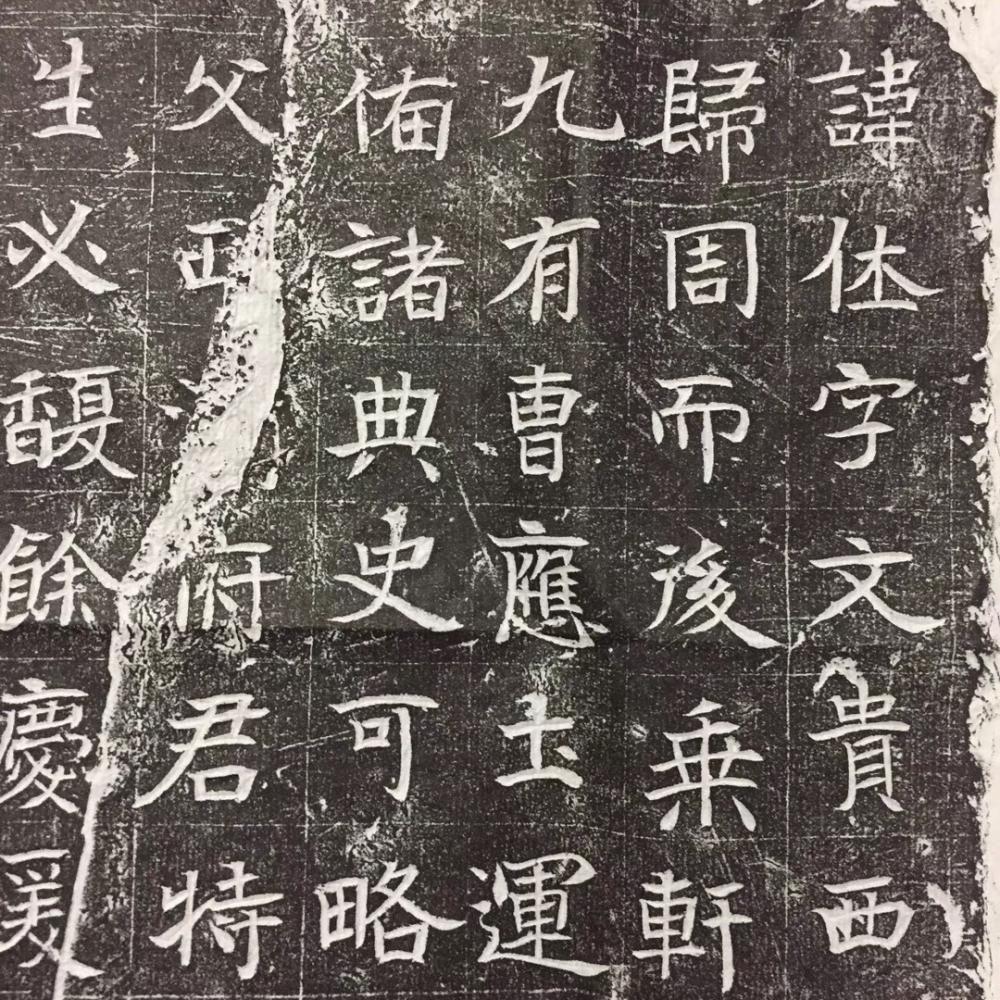 諱休字文貴西
歸周而後乗軒
九有曹應土運
俻諸典史可略
父府君特
生必馥餘慶